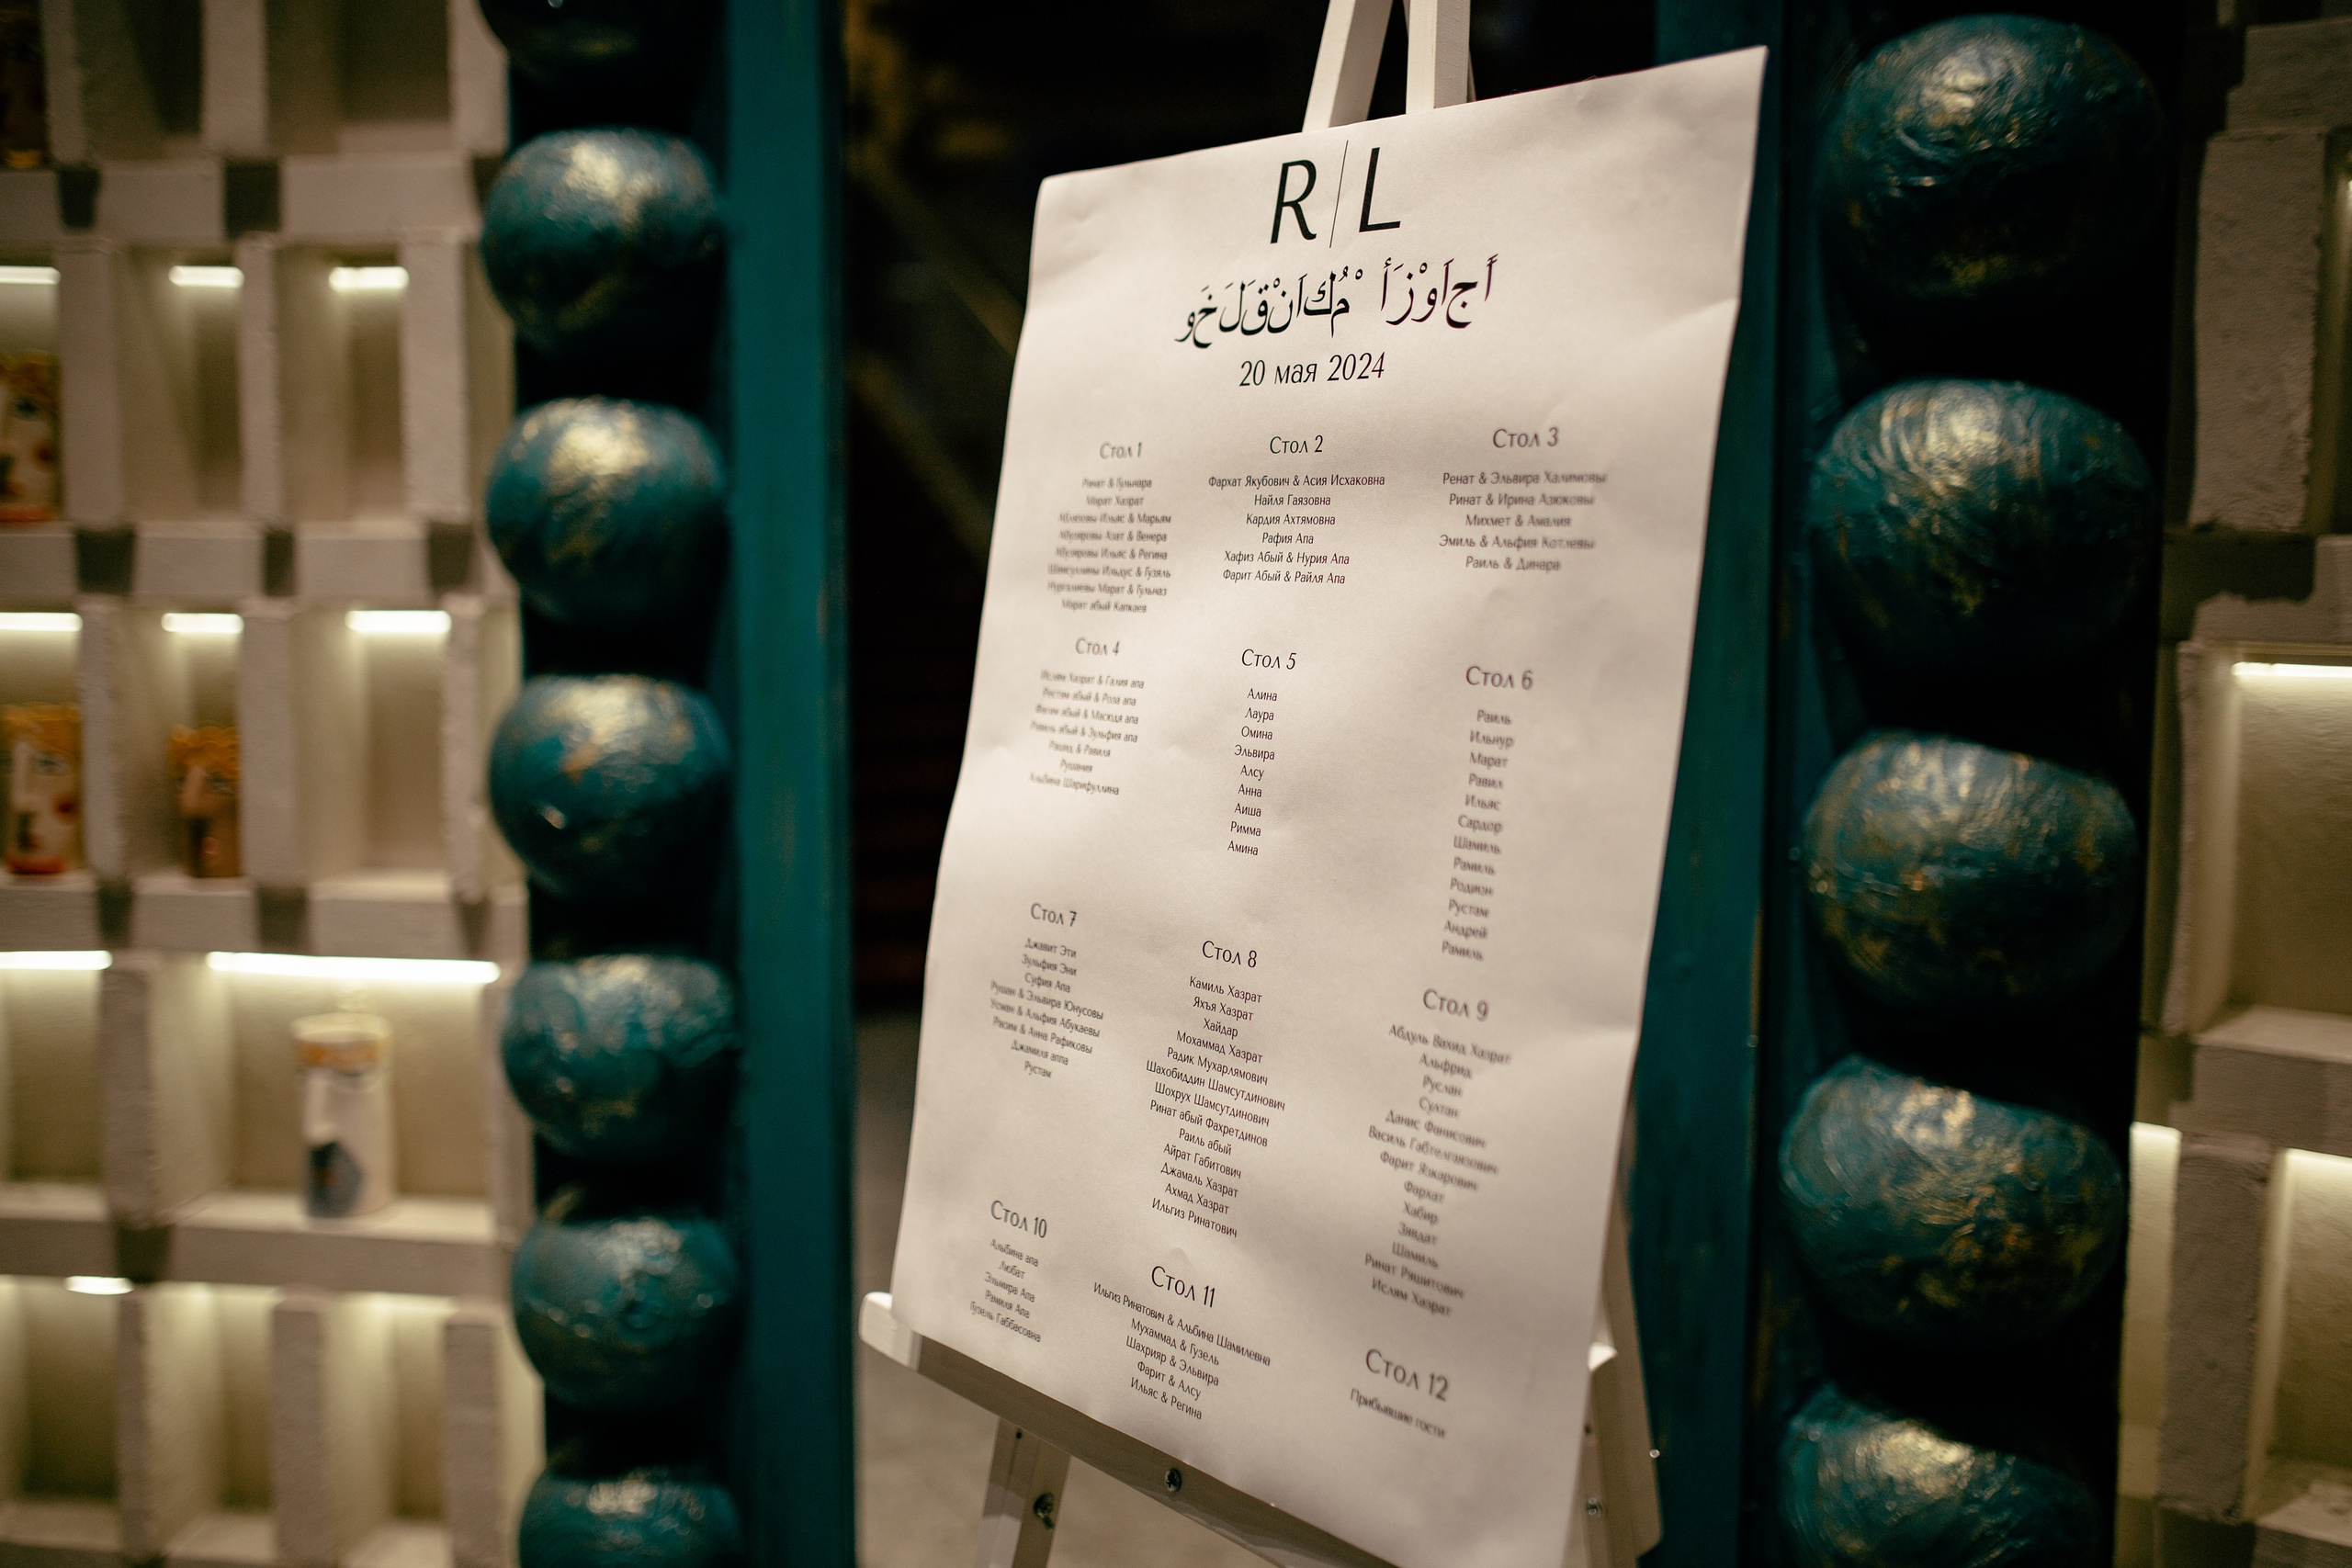 R | L
وَخَلَقْنَاكُمْ أَزْوَاجًا
20 мая 2024
Стол 1
Ринат & Гульнара
Марат Хазрат
Ильяс & Марьям
Азат & Венера
Ильяс & Регина
Ильдус & Гузяль
Марат & Гульназ
Марат абый Капкаев
Стол 2
Фархат Якубович & Асия Исхаковна
Найля Гаязовна
Кардия Ахтямовна
Рафия Апа
Хафиз Абый & Нурия Апа
Фарит Абый & Райля Апа
Стол 3
Ренат & Эльвира Халимовы
Ринат & Ирина Азюковы
Михмет & Амалия
Эмиль & Альфия Котлевы
Раиль & Динара
Стол 4
Ислям Хазрат & Галия апа
Рустям абый & Роза апа
абый & апа
Рамиль абый & Зульфия апа
Рашид & Равиля
Рушания
Альбина Шарифуллина
Стол 5
Алина
Лаура
Омина
Эльвира
Алсу
Анна
Аиша
Римма
Амина
Стол 6
Раиль
Ильнур
Марат
Равил
Ильяс
Сардор
Шамиль
Рамиль
Родион
Рустам
Андрей
Рамиль
Стол 7
Джавит Эти
Зульфия Эни
Суфия Апа
Рушан & Эльвира Юнусовы
Усман & Альфия Абукаевы
Расим & Анна Рафиковы
Джамиля аппа
Рустам
Стол 8
Камиль Хазрат
Яхъя Хазрат
Хайдар
Мохаммад Хазрат
Радик Мухарлямович
Шахобиддин Шамсутдинович
Шохрух Шамсутдинович
Ринат абый Фахретдинов
Раиль абый
Айрат Габитович
Джамаль Хазрат
Ахмад Хазрат
Ильгиз Ринатович
Стол 9
Абдуль Вахид Хазрат
Альфрид
Руслан
Султан
Данис Фанисович
Василь Габтелгаязович
Фарит Язкарович
Фархат
Хабир
Зиядат
Шамиль
Ринат Ряшитович
Ислям Хазрат
Стол 10
Альбина апа
Любат
Эльмира Апа
Рамиля Апа
Гузель Габбасовна
Стол 11
Ильгиз Ринатович & Альбина Шамилевна
Мухаммад & Гузель
Шахрияр & Эльвира
Фарит & Алсу
Ильяс & Регина
Стол 12
Прибывшие гости